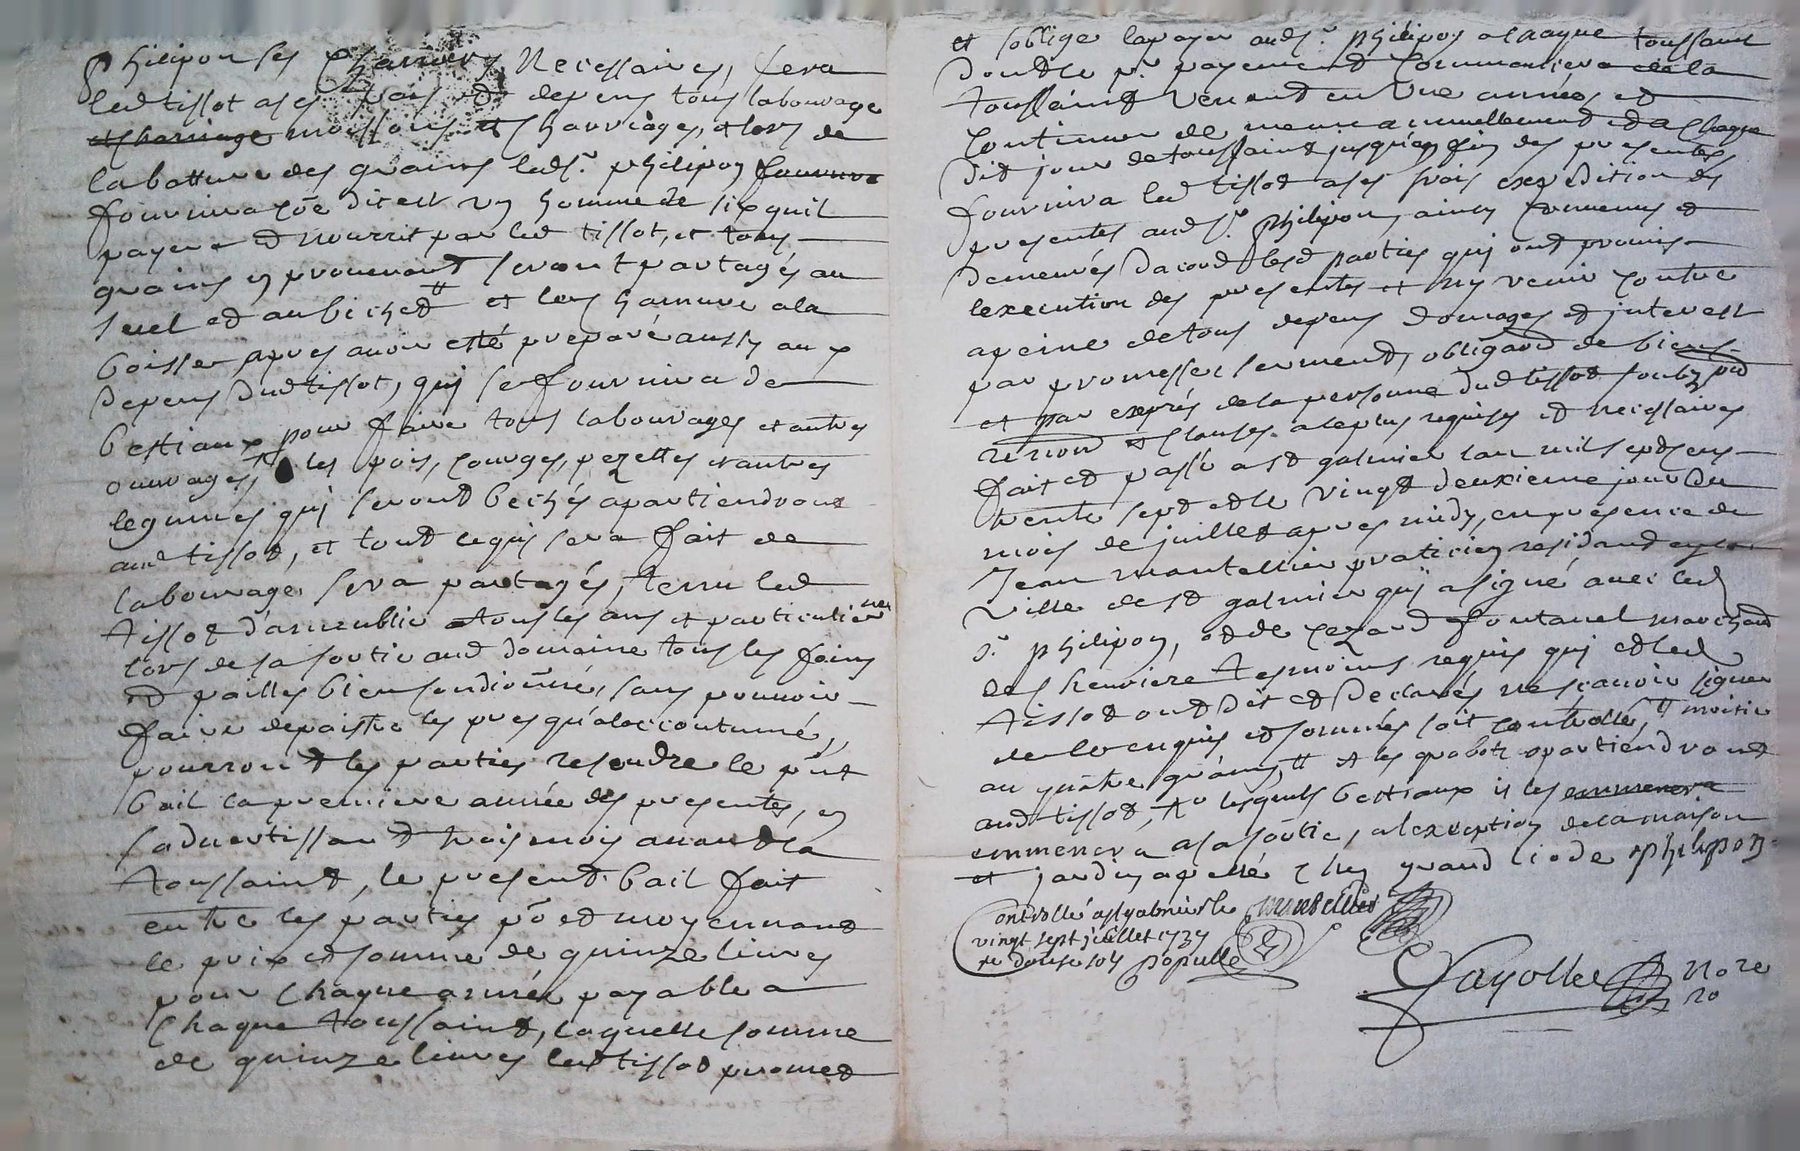 philipon les charrois Necessaires, fera
led tissot a ses frais et depens tous labourage
et charriage moissons et charriages, et lors de
la batture des grains led sr philipon fournira
fournira côe dit est un homme de six quil
payera et nourrit par led tissot, et tous
grains en provenant seront partagés au
seuel et au bichet et les harnure a la
boisse apres avoir etté preparé aussy aux
depens dud tissot, qui se fournira de
bestiaux pour faire tous labourages et autres
ouvrages, les pois, courges, pezettes et autres
legumes qui seront bechés apartiendront
aud tissot, et tout ce qui sera fait de
labourage sera partagés, tenu led
tissot d'armeublir tous les ans et particulierement
lors de sa sortie aud domaine tous les foins
et pailles bien conditionné, sans pouvoir
faire depaistre les pres qu'a laccoutumé,
pourront les parties resoudre le pnt
bail la premiere année des presentes, en
sadvertissant trois mois avant la
toussaint, le present bail fait
entre les parties pô et moyennant
le prix et somme de quinze livres
pour chaque année payable a
chaque toussaint, laquelle somme
de quinze livres led tissot promet
et soblige la payer aud sr philipon a chaque toussaint
dont le pr payement commencera a la
toussaint venant en une année et
continuer de meme annuellement et a chaque
dit jour de toussaint jusqu'a fin des presentes
fournira led tissot a ses frais expedition des
presentes aud sr philipon, ainsy convenus et
demeurés dacord lesd parties qui ont promis
lexecution des presentes et ny venir contre
a peine de tous depens domages et interest
par promesse, serment, obligaon de biens
et par exprés de la personne dud tissot soubz
renon et clauses a ce plus requises et necessaires
fait et passé a st galmier lan mil sept cens
trente sept et le vingt deuxieme jour du
mois de juillet apres midy, en presence de
Jean mantellier praticien residant en la
ville de st galmier qui a signé avec led
sr philipon, et de cezard fontanel marchand
des heuviere tesmoins requis qui et led
tissot ont dit et declarés ne scavoir signer
de ce enquis et sommés soit controllé, moitié
au quatre grains et les grabots apartiendront
aud tissot, lesquels bestiaux il les emmenera
emmenera a sa sortie, a lexception de la maison
et jardin apellé chez grand liode philipon
Controllé a st galmier le mantellier
vingt sept juillet 1737
re douse sols Populle
Fayolle Nore
ro